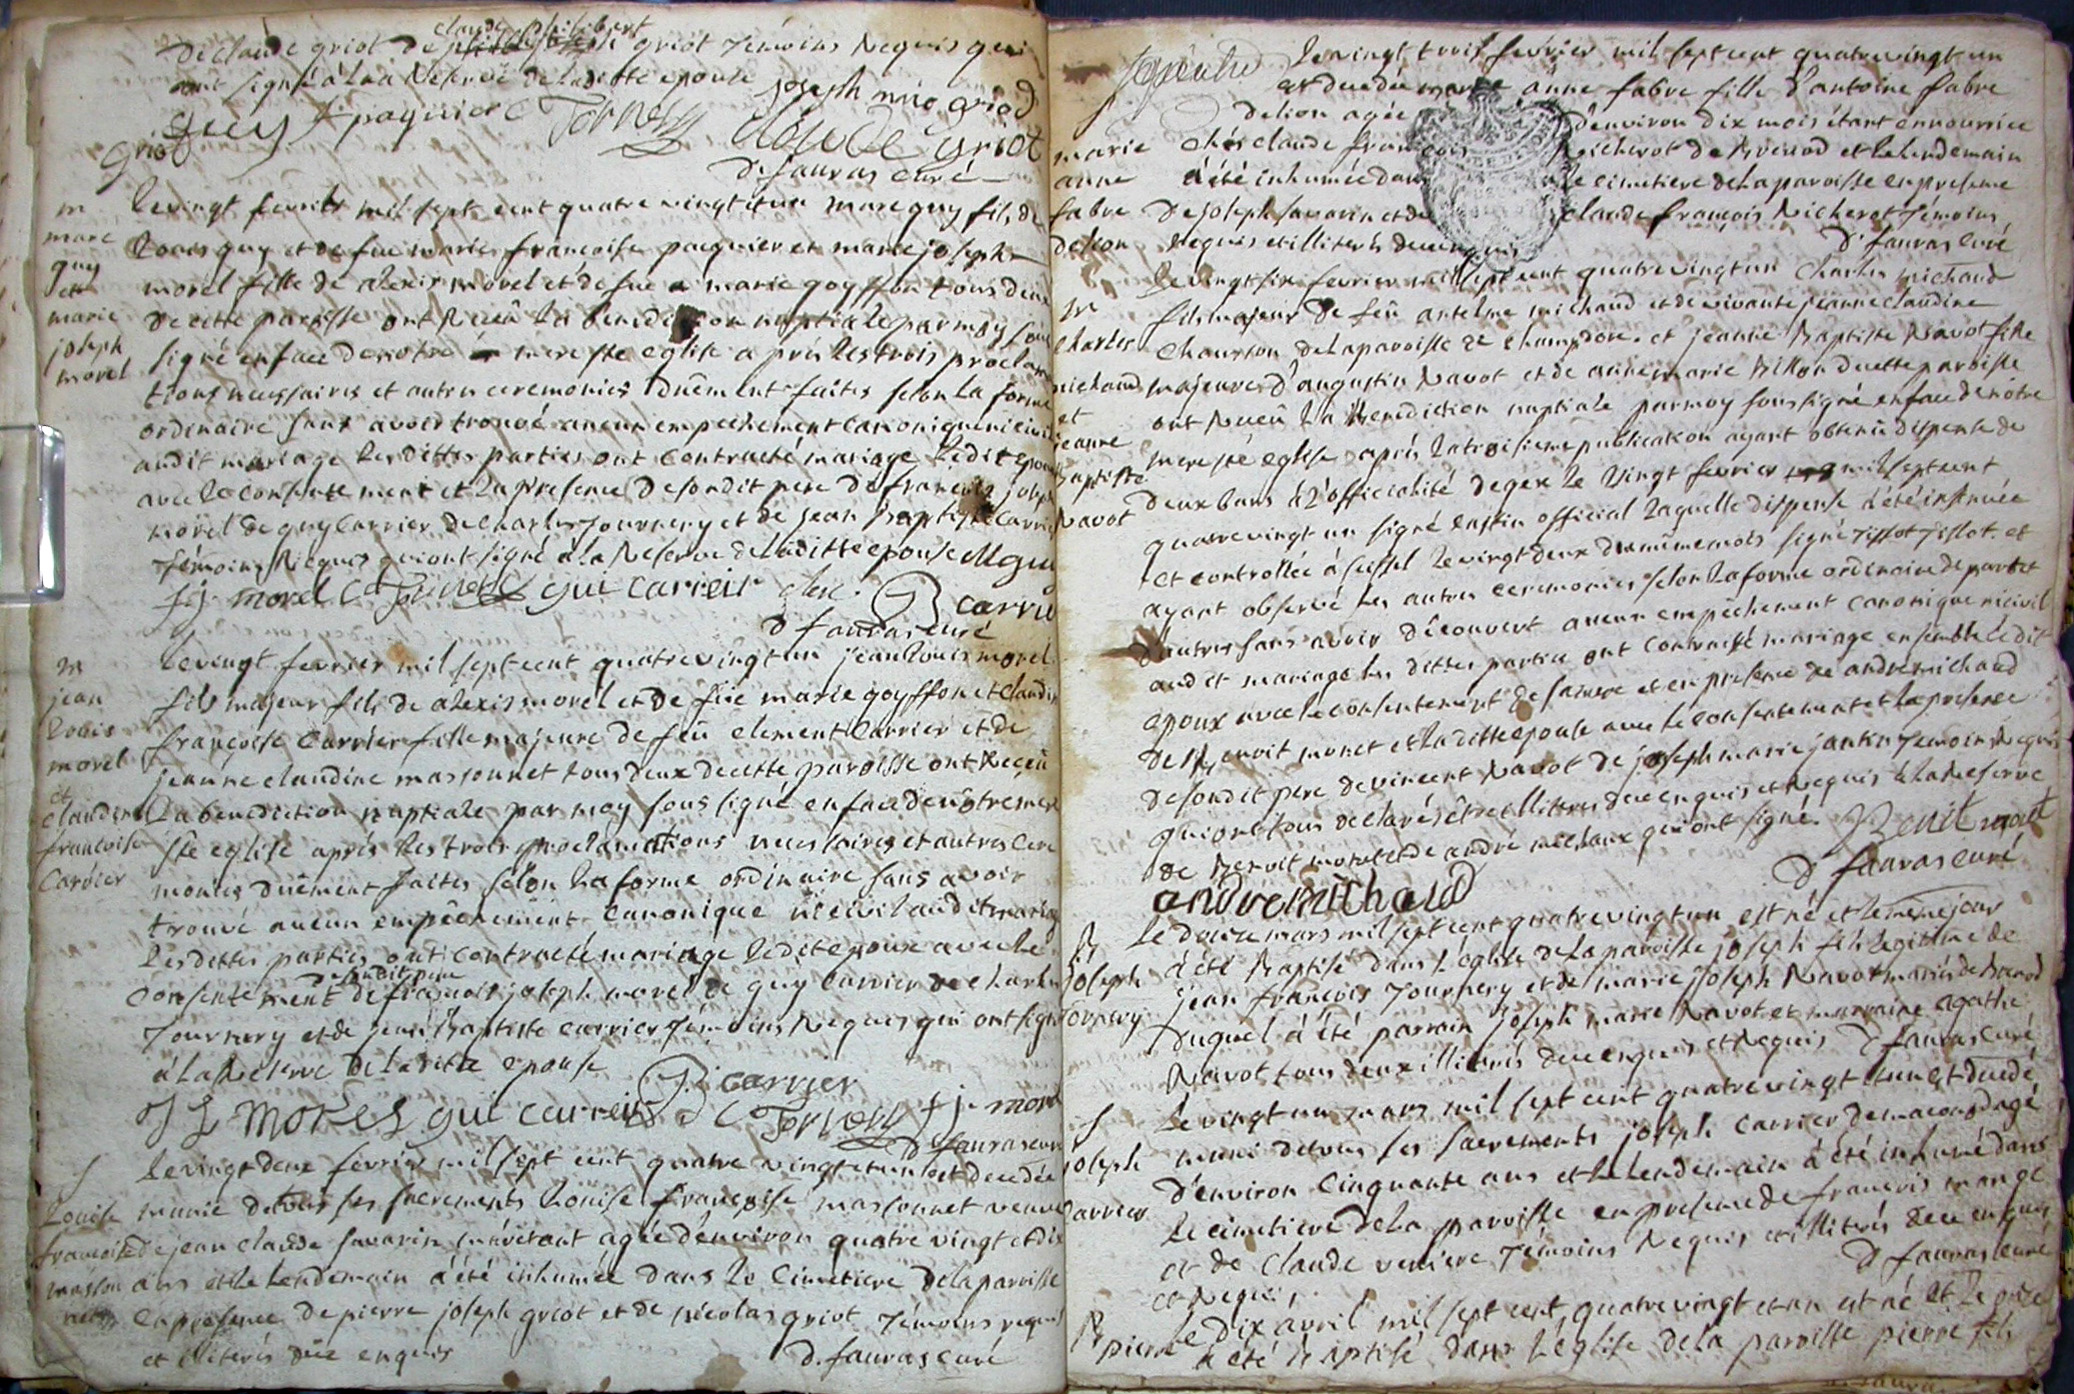 claude philibert
De claude griot de griot Témoins Requis qui
ont signé à la Reserve de laditte epouse joseph marie griod
Guy f paquier C Tornery claude griot
griot
D. fauras curé
m
marc
guy
et
marie
joseph
morel
Le vingt fevrier mil sept cent quatre vingt et un marc guy fils de
Louis guy et de fue marie françoise paquier et marie joseph
morel fille de alexis morel et de fue marie goyffon tous deux
de cette paroisse ont Receu la benediction nuptiale par moy sous
signé en face de notre mere ste eglise aprés les trois proclama
tions necessaires et autres ceremonies Duêment faites selon la forme
ordinaire sans avoir trouvé aucun empechement canonique ni civil
audit mariage Lesdittes parties ont contracté mariage Ledit epoux
avec le consentement et la presence de sondit pere de francois joseph
morel de guy Carrier de charles Tournery et de jean Baptiste Carrier
Témoins Requis qui ont signé à la Reserve de laditte epouse M gui
f j. morel C Tornery gui carreir B carrie
D fauras curé
m
jean
Louis
morel
et
claudine
françoise
Carrier
Le vingt fevrier mil sept cent quatre vingt un jean Louis morel
fils majeur fils de alexis morel et de füe marie goyffon et claudine
françoise Carrier fille majeure de feû clement Carrier et de
jeanne claudine massonnet tous deux de cette paroisse ont Receu
La benediction nuptiale par moy sous signé en face de nôtre mere
ste eglise aprés les trois proclamations necessaires et autres cere
monies duêment faites selon la forme ordinaire sans avoir
trouvé aucun empêchement canonique ni civil audit mariage
Lesdittes parties ont contracté mariage Ledit epoux avec le
de sondit pere
consentement de francois joseph morel de guy Carrier de charles
Tournery et de jean Baptiste carrier Témoins Requis qui ont signé
à la Reserve de laditte epouse
B carrier
J L MOREL gui carreir C Tornery f j. morel
D fauras curé
S
Louise
francoise
masson
net
Le vingt deux fevrier mil sept cent quatre vingt et un est decedée
munie de tous ses sacrements Louise françoise massonnet veuve
de jean claude savarin agée d'environ quatre vingt et dix
ans et le Lendemain à été inhumée dans le cimetiere de la paroisse
en presence de pierre joseph griot et de nicolas griot Témoins requis
et illiterés düe enquis
D. fauras curé
Sepulture
marie
anne
fabre
de lion
Le vingt trois fevrier mil sept cent quatre vingt un
est decedée marie anne fabre fille d'antoine fabre
de lion agée d'environ dix mois étant en nourrice
chés claude françois Richerot de Brenod et le lendemain
à été inhumée dans le cimetiere de la paroisse en presence
de joseph savarin et de claude françois Richerot Témoins
Requis et illiterés deue enquis
D fauras curé
m
charles
michaud
et
jeanne
Baptiste
Navot
Le vingt six fevrier mil sept cent quatre vingt un charles michaud
fils majeur de feû anselme michaud et de vivante jeanne claudine
chaurson de la paroisse de champdore. et jeanne Baptiste Navot fille
majeure d'augustin Navot et de anne marie Billon de cette paroisse
ont Receû la Benediction nuptiale par moy sous signé en face de nôtre
mere ste eglise aprés la troisieme publication ayant obtenû dispense de
deux bans à l'officialité de gex le vingt fevrier mil sept cent
quatre vingt un signé castin official laquelle dispense à été insinuée
et controllée à seissel le vingt deux du même mois signé Tissot Tissot. et
ayant observé les autres ceremonies selon la forme ordinaire de part et
d'autres sans avoir découvert aucun empêchement canonique ni civil
audit mariage les dittes parties ont contracté mariage ensemble ledit
epoux avec le consentement de sa mere et en presence de andré michaud
de Benoit monet et laditte epouse avec le consentement et la presence
de sondit pere de vincent Navot de joseph marie jantin Temoins Requis
qui ont tous déclarés être illiterés deue enquis et Requis à la Reserve
de Benoit monet et de andré michaux qui ont signé. Benoit monet
andre michaud
D fauras curé
B
joseph
Tornery
Le douze mars mil sept cent quatre vingt un est né et le meme jour
à été Baptisé dans l'église de la paroisse joseph fils legitime de
jean francois Tournery et de marie joseph Navot mariés de Brenod
duquel à été parrain joseph marie Navot et marraine agathe
Navot tous deux illiterés deue enquis et Requis D fauras curé
S
joseph
Carrier
Le vingt un mars mil sept cent quatre vingt un est decedé
muni de tous ses sacrements joseph Carrier de macconod agé
d'environ cinquante ans et le Lendemain à été inhumé dans
le cimetiere de la paroisse en presence de francois mange
et de claude veniere Témoins Requis et illiterés deue enquis
et Requis,
D fauras curé
B
pierre
Le dix avril mil sept cent quatre vingt et un est né et le onze
à été Baptisé dans l'église de la paroisse pierre fils